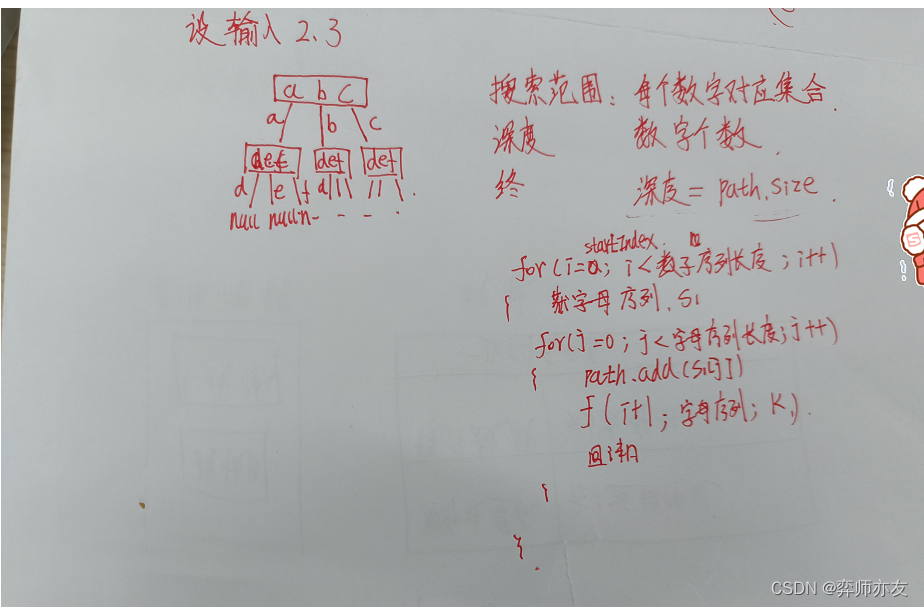 设输入 2、3
a b c
a b c
def def def
d e f d
null null n- - - .
搜索范围: 每个数字对应集合.
深度 数字个数.
终 深度 = path.size.
startIndex.
for (i=0; i<数字序列长度; i++)
{ 字母序列. Si
for(j=0; j<字母序列长度; j++)
{ path.add(Si[j])
f(i+1; 字母序列; K,).
回溯
}
}
CSDN @弈师亦友